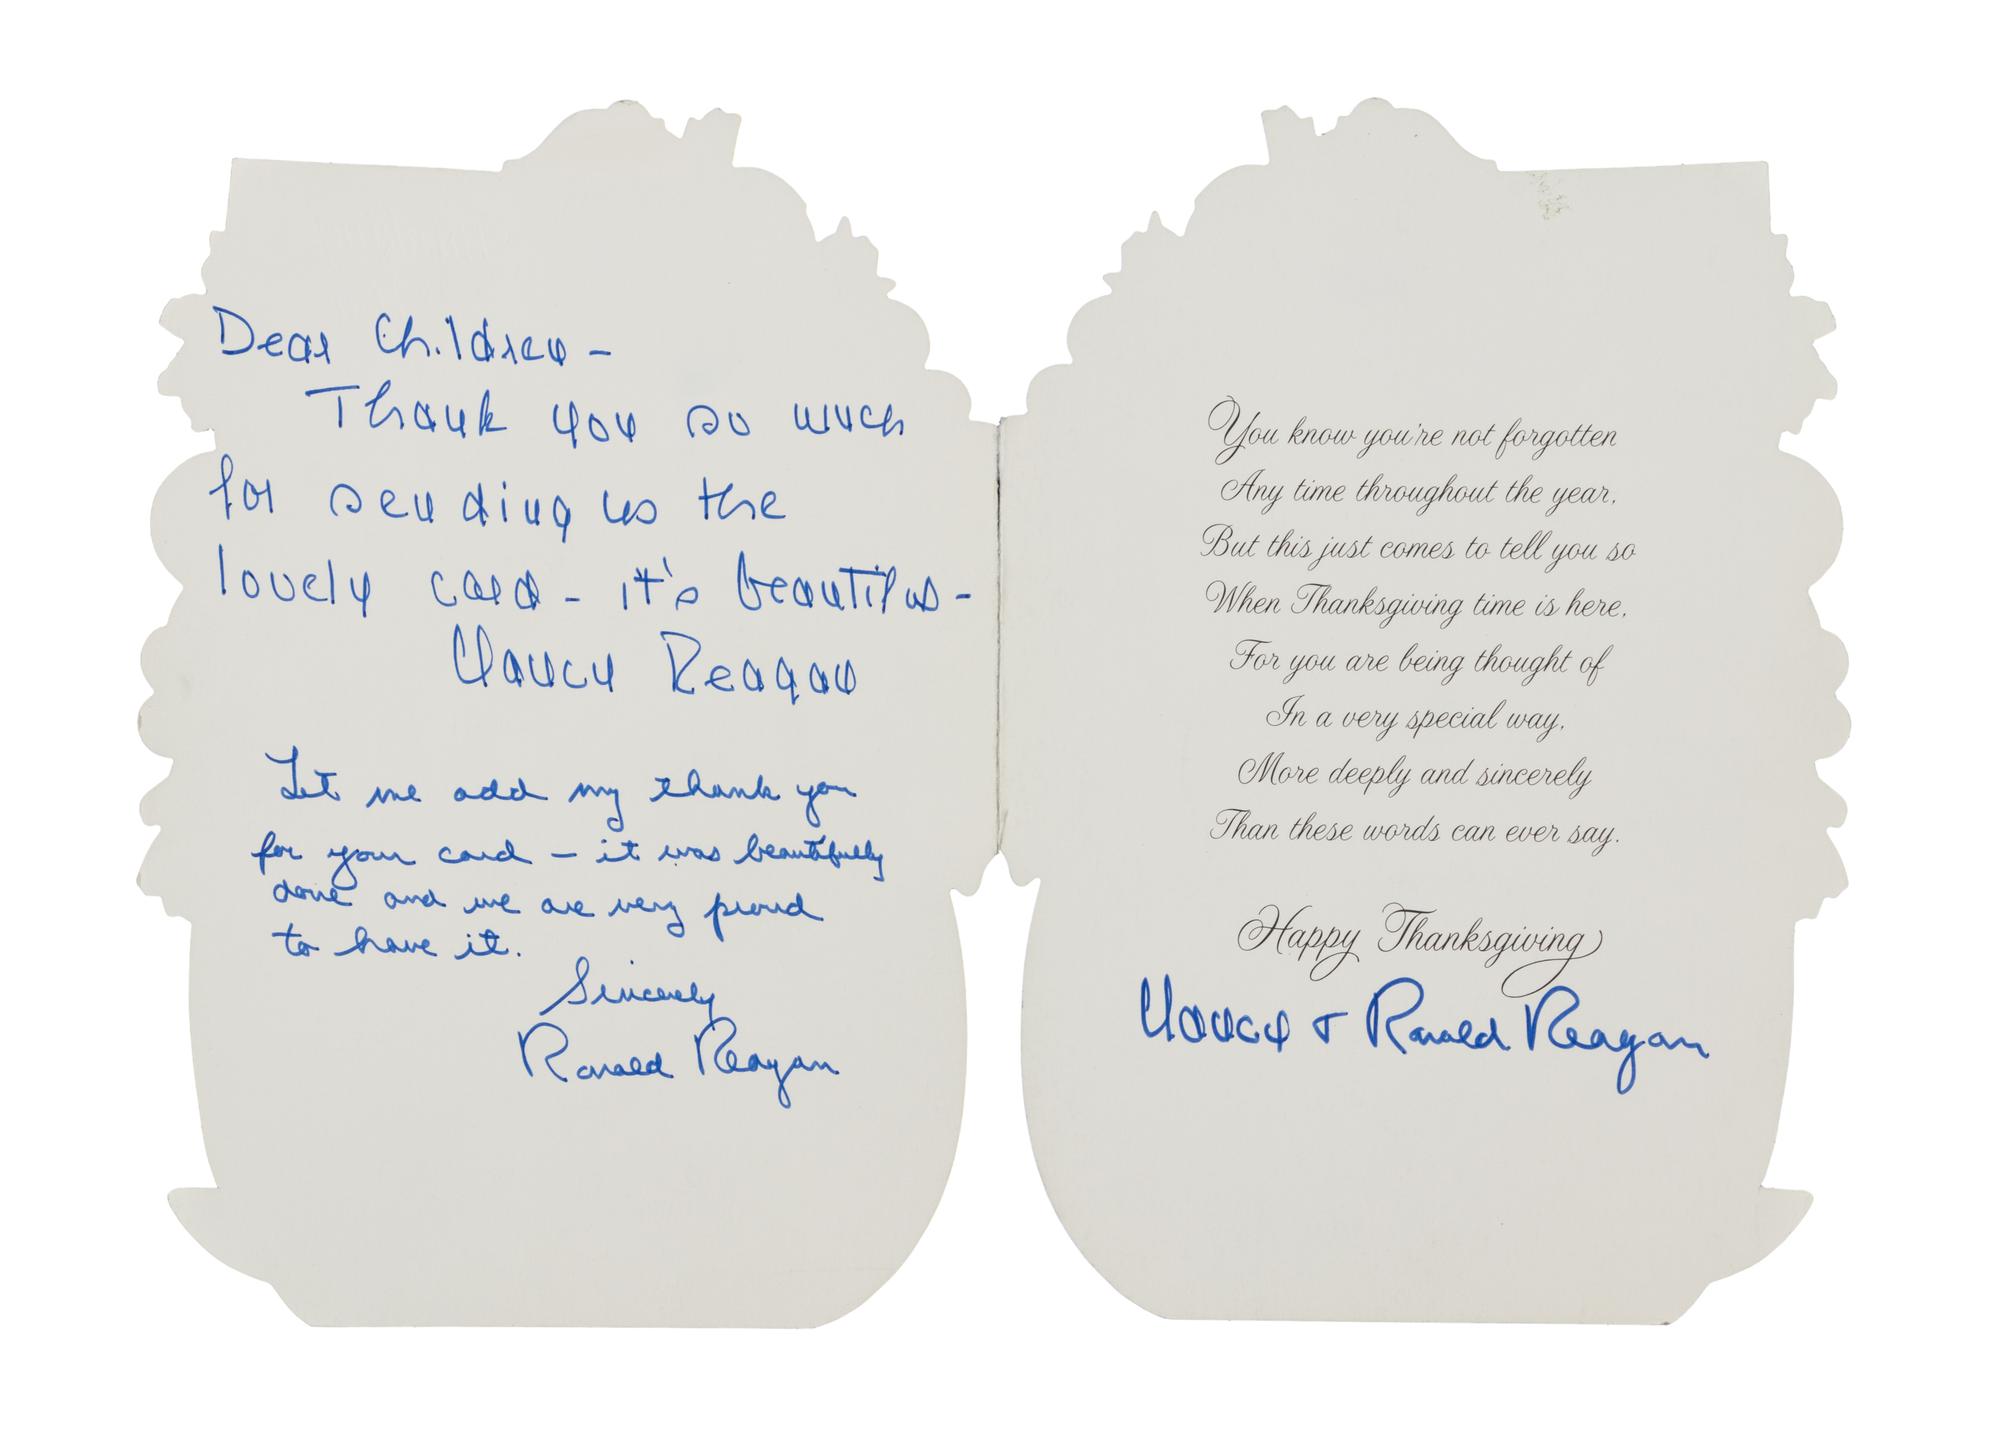 Dear Children –
Thank you so much
for sending us the
lovely card – it's beautiful –
Nancy Reagan
Let me add my thank you
for your card – it was beautifully
done and we are very proud
to have it.
Sincerely
Ronald Reagan
You know you're not forgotten
Any time throughout the year,
But this just comes to tell you so
When Thanksgiving time is here,
For you are being thought of
In a very special way,
More deeply and sincerely
Than these words can ever say.
Happy Thanksgiving
Nancy + Ronald Reagan